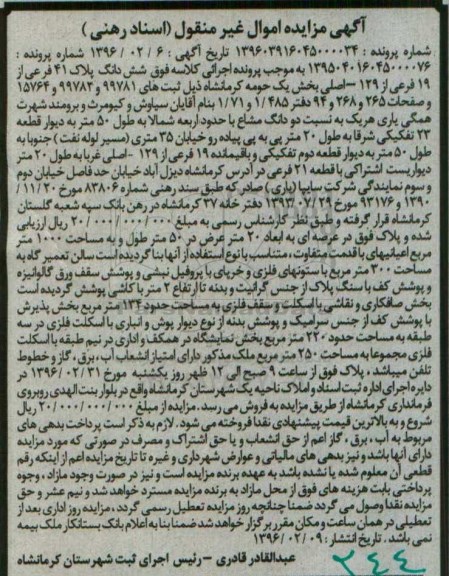 آگهی مزایده اموال غیر منقول (اسناد رهنی)
شماره پرونده : ۱۳۹۶۰۳۹۱۶۰۴۵۰۰۰۰۳۴ تاریخ آگهی : ۶ / ۰۲ / ۱۳۹۶ شماره پرونده :
۱۳۹۵۰۴۰۱۶۰۴۵۰۰۰۰۷۶ به موجب پرونده اجرائی کلاسه فوق شش دانگ پلاک ۴۱ فرعی از
۱۹ فرعی از ۱۲۹ -اصلی بخش یک حومه کرمانشاه ذیل ثبت های ۹۹۷۸۱ و ۹۹۷۸۲ و ۱۵۷۶۴
و صفحات ۲۶۵ و ۲۶۸ و ۹۴ دفتر ۱/۴۸۵ و ۱/۷۱ بنام آقایان سیاوش و کیومرث و برومند شهرت
همگی یاری هریک به نسبت دو دانگ مشاع با حدود اربعه شمالا به طول ۵۰ متر به دیوار قطعه
۲۳ تفکیکی شرقا به طول ۲۰ متر پی به پیاده رو خیابان ۳۵ متری (مسیر لوله نفت) جنوبا به
طول ۵۰ متر به دیوار قطعه دوم تفکیکی و باقیمانده ۱۹ فرعی از ۱۲۹ -اصلی غربا به طول ۲۰ متر
دیواریست اشتراکی با قطعه ۲۱ فرعی در آدرس کرمانشاه دیزل آباد خیابان حد فاصل خیابان دوم
و سوم نمایندگی شرکت سایپا (یاری) صادر که طبق سند رهنی شماره ۸۳۸۰۶ مورخ ۲۰ / ۱۱ /
۱۳۹۰ و ۹۳۱۷۶ مورخ ۲۹ / ۰۷ / ۱۳۹۳ دفتر خانه ۳۷ کرمانشاه در رهن بانک سپه شعبه گلستان
کرمانشاه قرار گرفته و طبق نظر کارشناس رسمی به مبلغ ۲۰/۰۰۰/۰۰۰/۰۰۰ ریال ارزیابی
شده و پلاک فوق در عرصه ای به ابعاد ۲۰ متر عرض در ۵۰ متر طول و به مساحت ۱۰۰۰ متر
مربع اعیانیهای با قدمت متفاوت ، متناسب با نوع استفاده از آنها بنا گردیده است سالن تعمیر گاه به
مساحت ۳۰۰ متر مربع با ستونهای فلزی و خرپای با پروفیل نبشی و پوشش سقف ورق گالوانیزه
و پوشش کف با سنگ پلاک از جنس گرانیت و بدنه تا ارتفاع ۲ متر با کاشی پوشش گردیده است
بخش صافکاری و نقاشی با اسکلت و سقف فلزی به مساحت حدود ۱۳۴ متر مربع بخش پذیرش
با پوشش کف از جنس سرامیک و پوشش بدنه از نوع دیوار پوش و انباری با اسکلت فلزی در سه
طبقه به مساحت حدود ۲۲۰ متر مربع بخش نمایشگاه در همکف و اداری در نیم طبقه با اسکلت
فلزی مجموعا به مساحت ۲۵۰ متر مربع ملک مذکور دارای امتیاز انشعاب آب ، برق ، گاز و خطوط
تلفن میباشد ، پلاک فوق از ساعت ۹ صبح الی ۱۲ ظهر روز یکشنبه مورخ ۳۱ / ۰۲ / ۱۳۹۶ در
دایره اجرای اداره ثبت اسناد و املاک ناحیه یک شهرستان کرمانشاه واقع در بلوار بنت الهدی روبروی
فرمانداری کرمانشاه از طریق مزایده به فروش می رسد. مزایده از مبلغ ۲۰/۰۰۰/۰۰۰/۰۰۰ ریال
شروع و به بالاترین قیمت پیشنهادی نقدا فروخته می شود. لازم به ذکر است پرداخت بدهی های
مربوط به آب ، برق ، گاز اعم از حق انشعاب و یا حق اشتراک و مصرف در صورتی که مورد مزایده
دارای آنها باشد و نیز بدهی های مالیاتی و عوارض شهرداری و غیره تا تاریخ مزایده اعم از اینکه رقم
قطعی آن معلوم شده یا نشده باشد به عهده برنده مزایده است و نیز در صورت وجود مازاد ، وجوه
پرداختی بابت هزینه های فوق از محل مازاد به برنده مزایده مسترد خواهد شد و نیم عشر و حق
مزایده نقدا وصول می گردد ضمنا چنانچه روز مزایده تعطیل رسمی گردد ، مزایده روز اداری بعد از
تعطیلی در همان ساعت و مکان مقرر برگزار خواهد شد ضمنا بنا به اعلام بانک بستانکار ملک بیمه
نمی باشد. تاریخ انتشار : ۰۹ / ۰۲ / ۱۳۹۶
عبدالقادر قادری – رئیس اجرای ثبت شهرستان کرمانشاه
۲۴۴